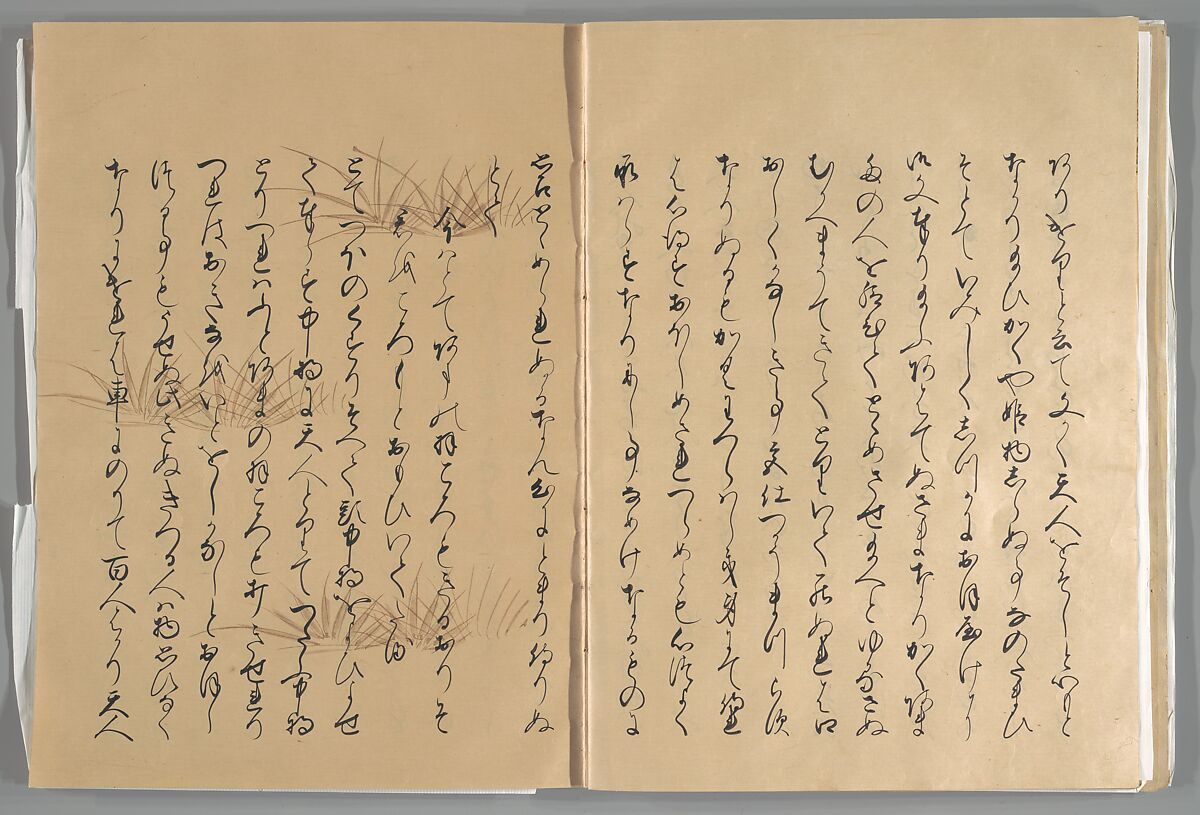 ありけりと云て文かく天人をそしと心もと
なかりまひかくや姫物しらぬ事なのたまひ
そとていみしくしつかにおほやけに
御文奉りまふあはてぬさまなりかくあま
たの人を給ひてとゝめさせまへとゆるさぬ
むかへまうてきてとりいてまかりぬれは口
おしくかなしき事宮仕つかうまつらす
なりぬるもかくわつらはしき身にて侍れ
は心得すおほしめされつらめとも心つよく
承はらすなりにし事なめけなるものに
思召とゝめられぬるなん心にとまり侍りぬ
とて
今はとてあまの羽ころもきるおりそ
君をこひしとおもひいてたる
とてつほのくすりそへて頭中将をよひよせ
て奉らす中将に天人とりて つたふ中将
とりつれはふとあまの羽ころも打きせ奉り
つれはおきなをいとをしかなしとおほし
つる事もうせぬ此きぬきつる人は物思ひなく
なりにけれは車にのりて百人はかり天人